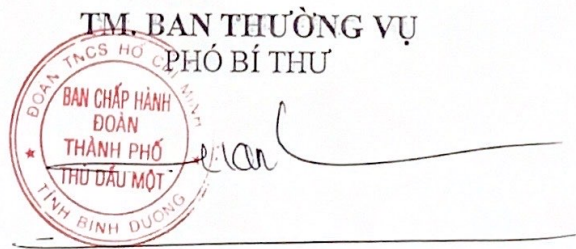 TM. BAN THƯỜNG VỤ
PHÓ BÍ THƯ
ĐOÀN TNCS HỒ CHÍ MINH
BAN CHẤP HÀNH
ĐOÀN
THÀNH PHỐ
THỦ DẦU MỘT
TỈNH BÌNH DƯƠNG